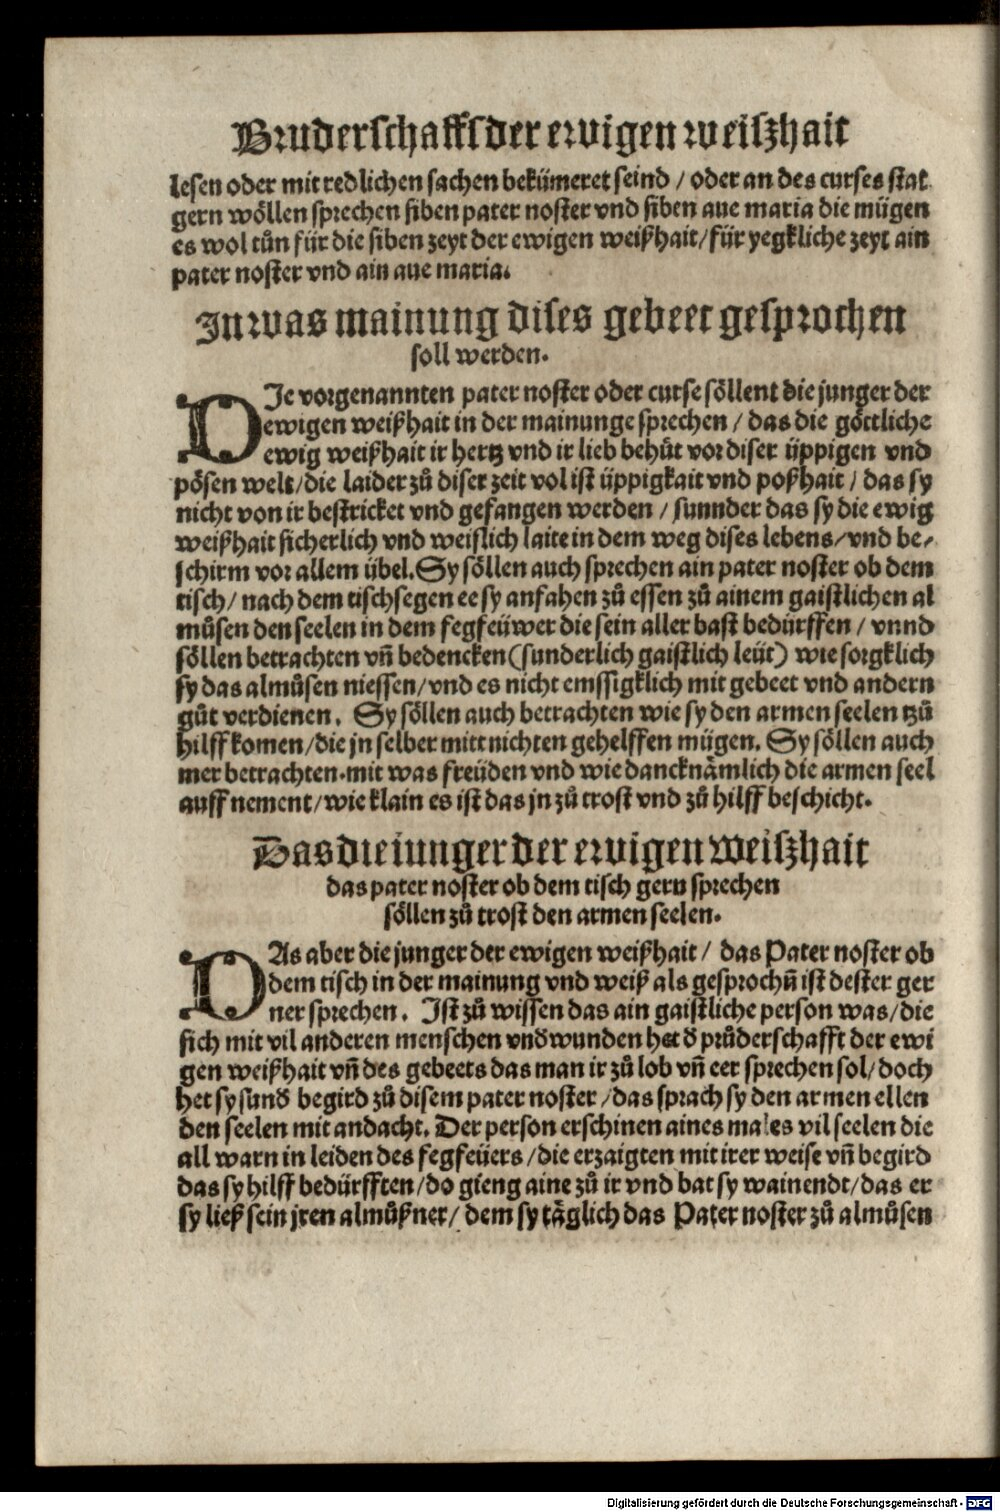 Bruderschafft der ewigen weiſzhait
leſen oder mit redlichen ſachen bekümeret ſeind / oder an des curſes ſtat
gern wöllen ſprechen ſiben pater noſter vnd ſiben aue maria die mügen
es wol tůn für die ſiben zeyt der ewigen weißhait/für yegkliche zeyt ain
pater noſter vnd ain aue maria.
In was mainung diſes gebeet geſprochen
ſoll werden.
DIe vorgenannten pater noſter oder curſe ſöllent die junger der
ewigen weißhait in der mainunge ſprechen / das die göttliche
ewig weißhait ir hertz vnd ir lieb behüt vor diſer üppigen vnd
pöſen welt/die laider zů diſer zeit vol iſt üppigkait vnd poßhait / das ſy
nicht von ir beſtricket vnd gefangen werden / ſunnder das ſy die ewig
weißhait ſicherlich vnd weiſlich laite in dem weg diſes lebens/vnd be/
ſchirm vor allem übel. Sy ſöllen auch ſprechen ain pater noſter ob dem
tiſch/ nach dem tiſchſegen ee ſy anfahen zů eſſen zů ainem gaiſtlichen al
můſen den ſeelen in dem fegfeüwer die ſein aller baſt bedürffen / vnnd
ſöllen betrachten vñ bedencken (ſunderlich gaiſtlich leüt) wie ſorgklich
ſy das almůſen nieſſen/vnd es nicht emſſigklich mit gebeet vnd andern
gůt verdienen. Sy ſöllen auch betrachten wie ſy den armen ſeelen tzů
hilff komen/die jn ſelber mitt nichten gehelffen mügen. Sy ſöllen auch
mer betrachten.mit was freüden vnd wie dancknämlich die armen ſeel
auff nement/wie klain es iſt das jn zů troſt vnd zů hilff beſchicht.
Das die junger der ewigen weiſzhait
das pater noſter ob dem tiſch gern ſprechen
ſöllen zů troſt den armen ſeelen.
DAs aber die junger der ewigen weißhait / das Pater noſter ob
dem tiſch in der mainung vnd weiß als geſprochñ iſt deſter ger
ner ſprechen. Iſt zů wiſſen das ain gaiſtliche perſon was/die
ſich mit vil anderen menſchen vnd̕wunden het d̕ průderſchafft der ewi
gen weißhait vñ des gebeets das man ir zů lob vñ eer ſprechen ſol/doch
het ſy ſund̕ begird zů diſem pater noſter /das ſprach ſy den armen ellen
den ſeelen mit andacht. Der perſon erſchinen aines males vil ſeelen die
all warn in leiden des fegfeüers /die erzaigten mit irer weiſe vñ begird
das ſy hilff bedürfften/do gieng aine zů ir vnd bat ſy wainendt/das er
ſy ließ ſein jren almůßner/ dem ſy täglich das Pater noſter zů almůſen
Digitalisierung gefördert durch die Deutsche Forschungsgemeinschaft - DFG